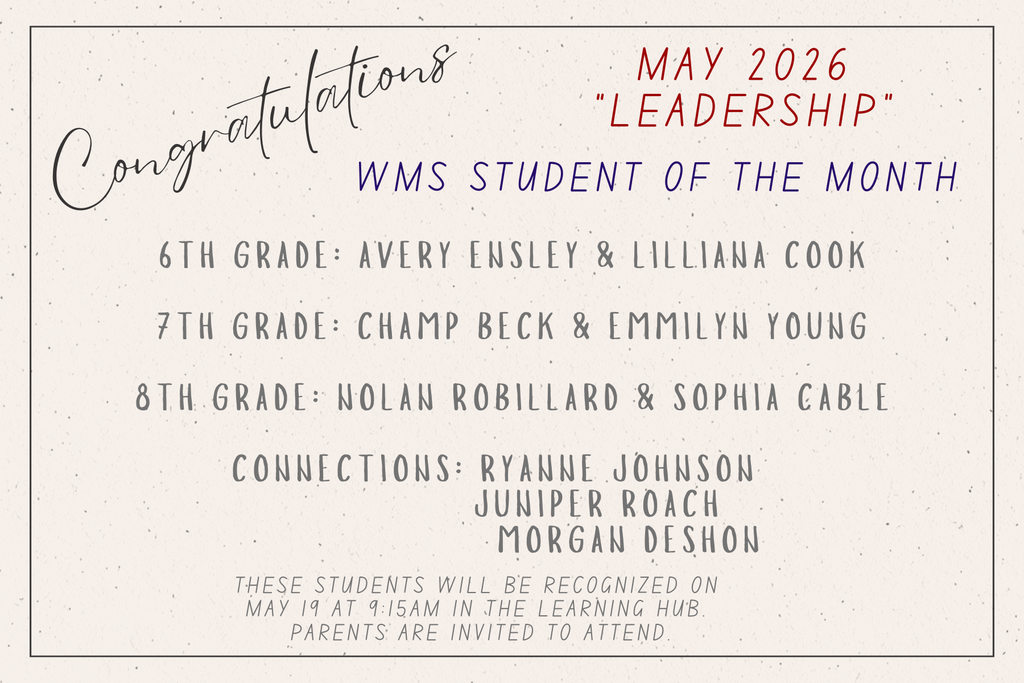 Congratulations
MAY 2026
"LEADERSHIP"
WMS STUDENT OF THE MONTH
6TH GRADE: AVERY ENSLEY & LILLIANA COOK
7TH GRADE: CHAMP BECK & EMMILYN YOUNG
8TH GRADE: NOLAN ROBILLARD & SOPHIA CABLE
CONNECTIONS: RYANNE JOHNSON
JUNIPER ROACH
MORGAN DESHON
THESE STUDENTS WILL BE RECOGNIZED ON
MAY 19 AT 9:15AM IN THE LEARNING HUB.
PARENTS ARE INVITED TO ATTEND.